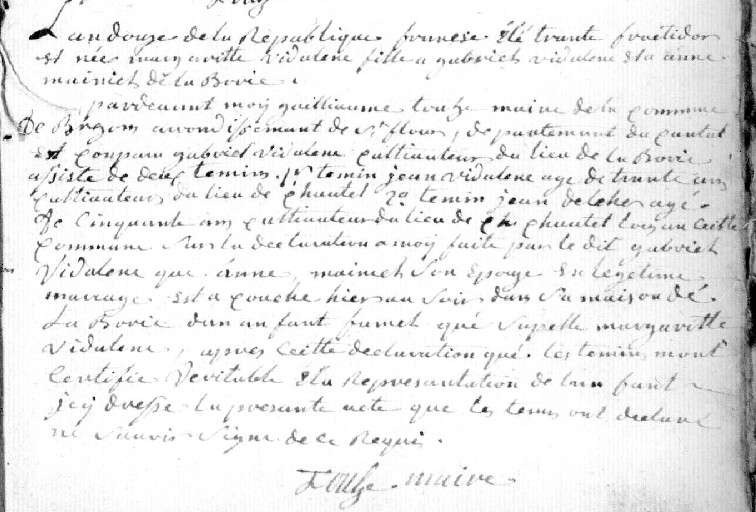 Lan douze de la Republique francese & le trante fructidor
est née margaritte vidalenc fille a gabriel vidalenc & a anne
mainiel de la Borie .
pardeavant moy guilliaume touze maire de la commune
de Brezons arrondissemant de st flour, departemant du cantal
est conparu gabriel vidalenc cultiuateur du lieu de la Borie
assiste de deux temins. pr temin jean vidalenc age de trante ans
cultiuateur du lieu de chautel 2e temin jean delcher age
de cinquante ans cultiuateur du lieu de chautel tous au ceitte
commune sur la declaration a moy faite par le dit gabriel
vidalenc que anne mainiel son epouze en legetime
mariage est a couche hier au soir dans sa maison de
la Borie dun anfant fumel qué sapelle margaritte
vidalenc, apres ceitte declaration qué les temins mont
certifie veritable & la represantation de lan fant
jey dresse la presante acte que les temins ont declaré
ne sauoir signe de ce requi .
touze maire